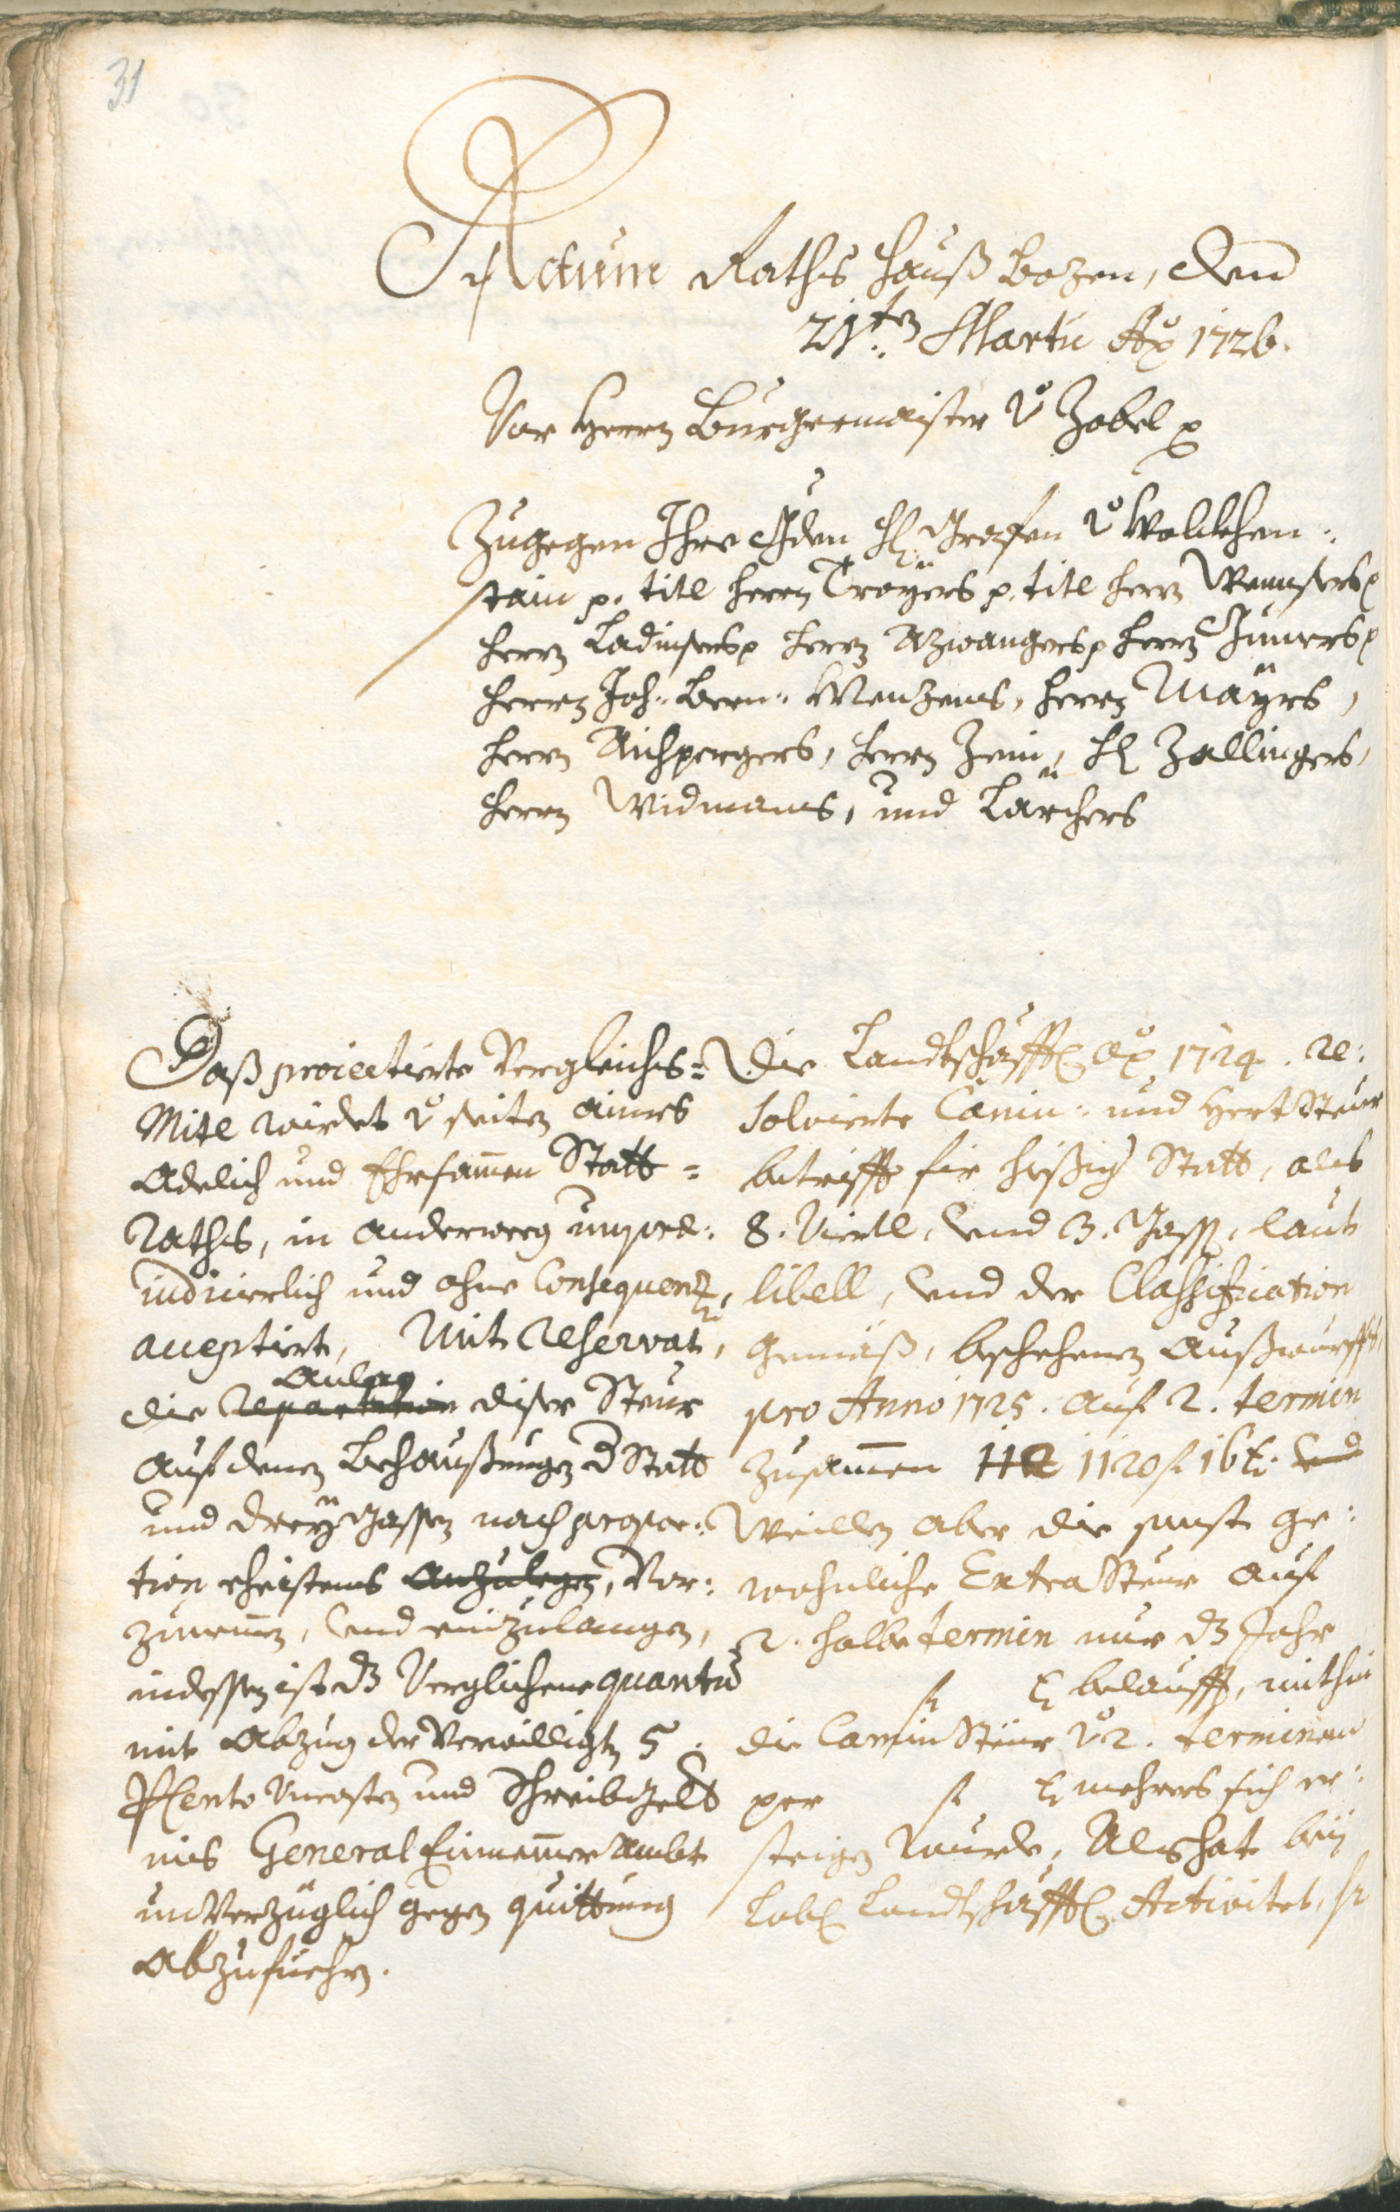 31
Actum Raths Hauß Bozen, den
21.ten Martii Ao 1726.
Vor Herrn Burgermaister v. Zobel p
Zugegen Ihro Gden H. Grafen v. Wolckhen-
stain p. titl Herrn Troÿers p. titl Herrn
Herrn Ladinsers p Herrn Azwangers p Herrn Gumers p
Herrn Joh: Bern: Menzens, Herrn Maÿrs,
Herrn Aichpergers, Herrn Zeni, H. Zallingers,
Herrn Widmans, und Larchers
Daß proiectierte Vergleichs-
Mitl wirdet v. seiten aines
Adelich und Ehrsamen Statt-
Raths, in anderweeg unprae-
iudicierlich und ohne Consequenz,
acceptirt, Mit reservat,
Anlag
die repartition diser Steur
auf denen Behaußungen d Statt
und dreÿ Gassen nach propor-
tion ehristens anzulegen, Vor-
zunemen, und einzulangen,
indessen ist dz Verglichene quantum
mit Abzug der Verwilligten 5
PCento Uncosten und Schreibgelt
ins General Einnemer Ambt
unverzüglich gegen quittung
abzufuehren.
Die Landtschäfftl. Ao 1724. re-
solvierte Camin- und Hert Steur
betrifft fir hießige Statt, als
8. Viertl, und 3. Gassen, laut
libell, und der Classification
gemäß, beschehenen Außwurfs
pro Anno 1725. auf 2. termin
zusammen 112 1120 f 16 k. und
Weillen aber die sunst ge-
wohnliche Extra Steur auf
2. halbe termin nur dz Jahr
f k belaufft, mithin
die Camin Steur v. 2. terminen
per f k mehrers sich er-
steigen wurde, Als hat beÿ
Lobl. Landtschäfftl. Activitet, sr